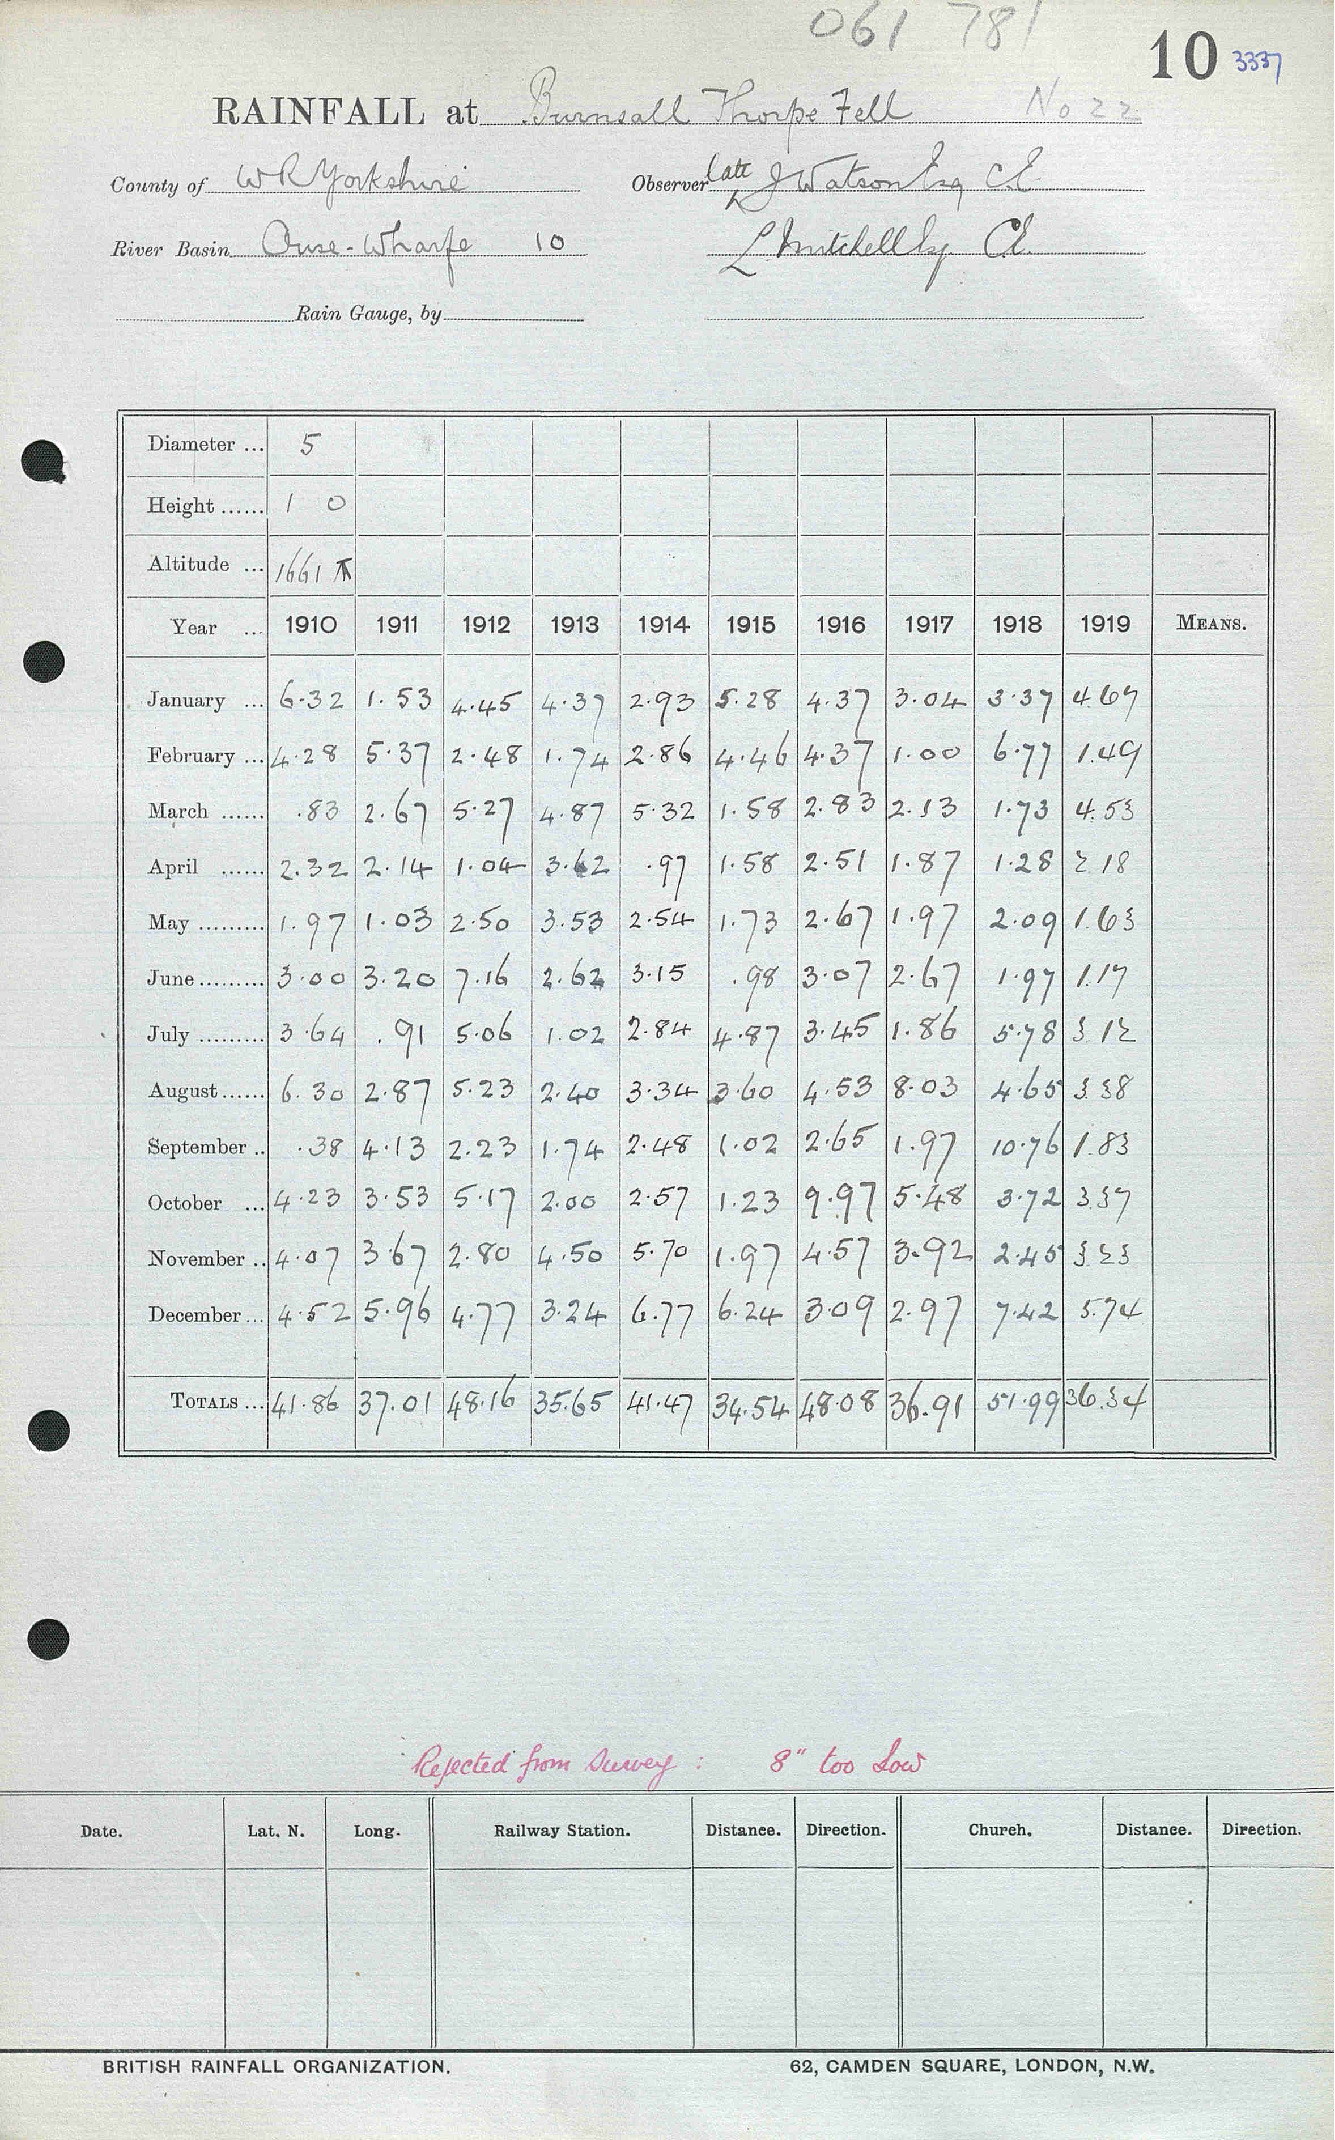 061 781
10 3337
RAINFALL at Burnsall Thorpe Fell No 22
County of W R Yorkshire Observer late J Watson Esq CE
River Basin Ouse-Wharfe 10 L Mitchell Esq CE
Rain Gauge, by
Diameter ... 5
Height ...... 1 0
Altitude ... 1661
Year ... 1910 1911 1912 1913 1914 1915 1916 1917 1918 1919 MEANS.
January ... 6.32 1.53 4.45 4.37 2.93 5.28 4.37 3.04 3.37 4.67
February ... 4.28 5.37 2.48 1.74 2.86 4.46 4.37 1.00 6.77 1.49
March ...... .83 2.67 5.27 4.87 5.32 1.58 2.83 2.13 1.73 4.53
April ...... 2.32 2.14 1.04 3.62 .97 1.58 2.51 1.87 1.28 2.18
May ......... 1.97 1.03 2.50 3.53 2.54 1.73 2.67 1.97 2.09 1.63
June ......... 3.00 3.20 7.16 2.62 3.15 .98 3.07 2.67 1.97 1.17
July ......... 3.64 .91 5.06 1.02 2.84 4.87 3.45 1.86 5.78 3.12
August ...... 6.30 2.87 5.23 2.40 3.34 3.60 4.53 8.03 4.65 3.38
September .. .38 4.13 2.23 1.74 2.48 1.02 2.65 1.97 10.76 1.83
October ... 4.23 3.53 5.17 2.00 2.57 1.23 9.97 5.48 3.72 3.37
November .. 4.07 3.67 2.80 4.50 5.70 1.97 4.57 3.92 2.45 3.23
December ... 4.52 5.96 4.77 3.24 6.77 6.24 3.09 2.97 7.42 5.74
TOTALS ... 41.86 37.01 48.16 35.65 41.47 34.54 48.08 36.91 51.99 36.34
Rejected from Survey : 8" too low
Date. Lat. N. Long. Railway Station. Distance. Direction. Church. Distance. Direction.
BRITISH RAINFALL ORGANIZATION. 62, CAMDEN SQUARE, LONDON, N.W.